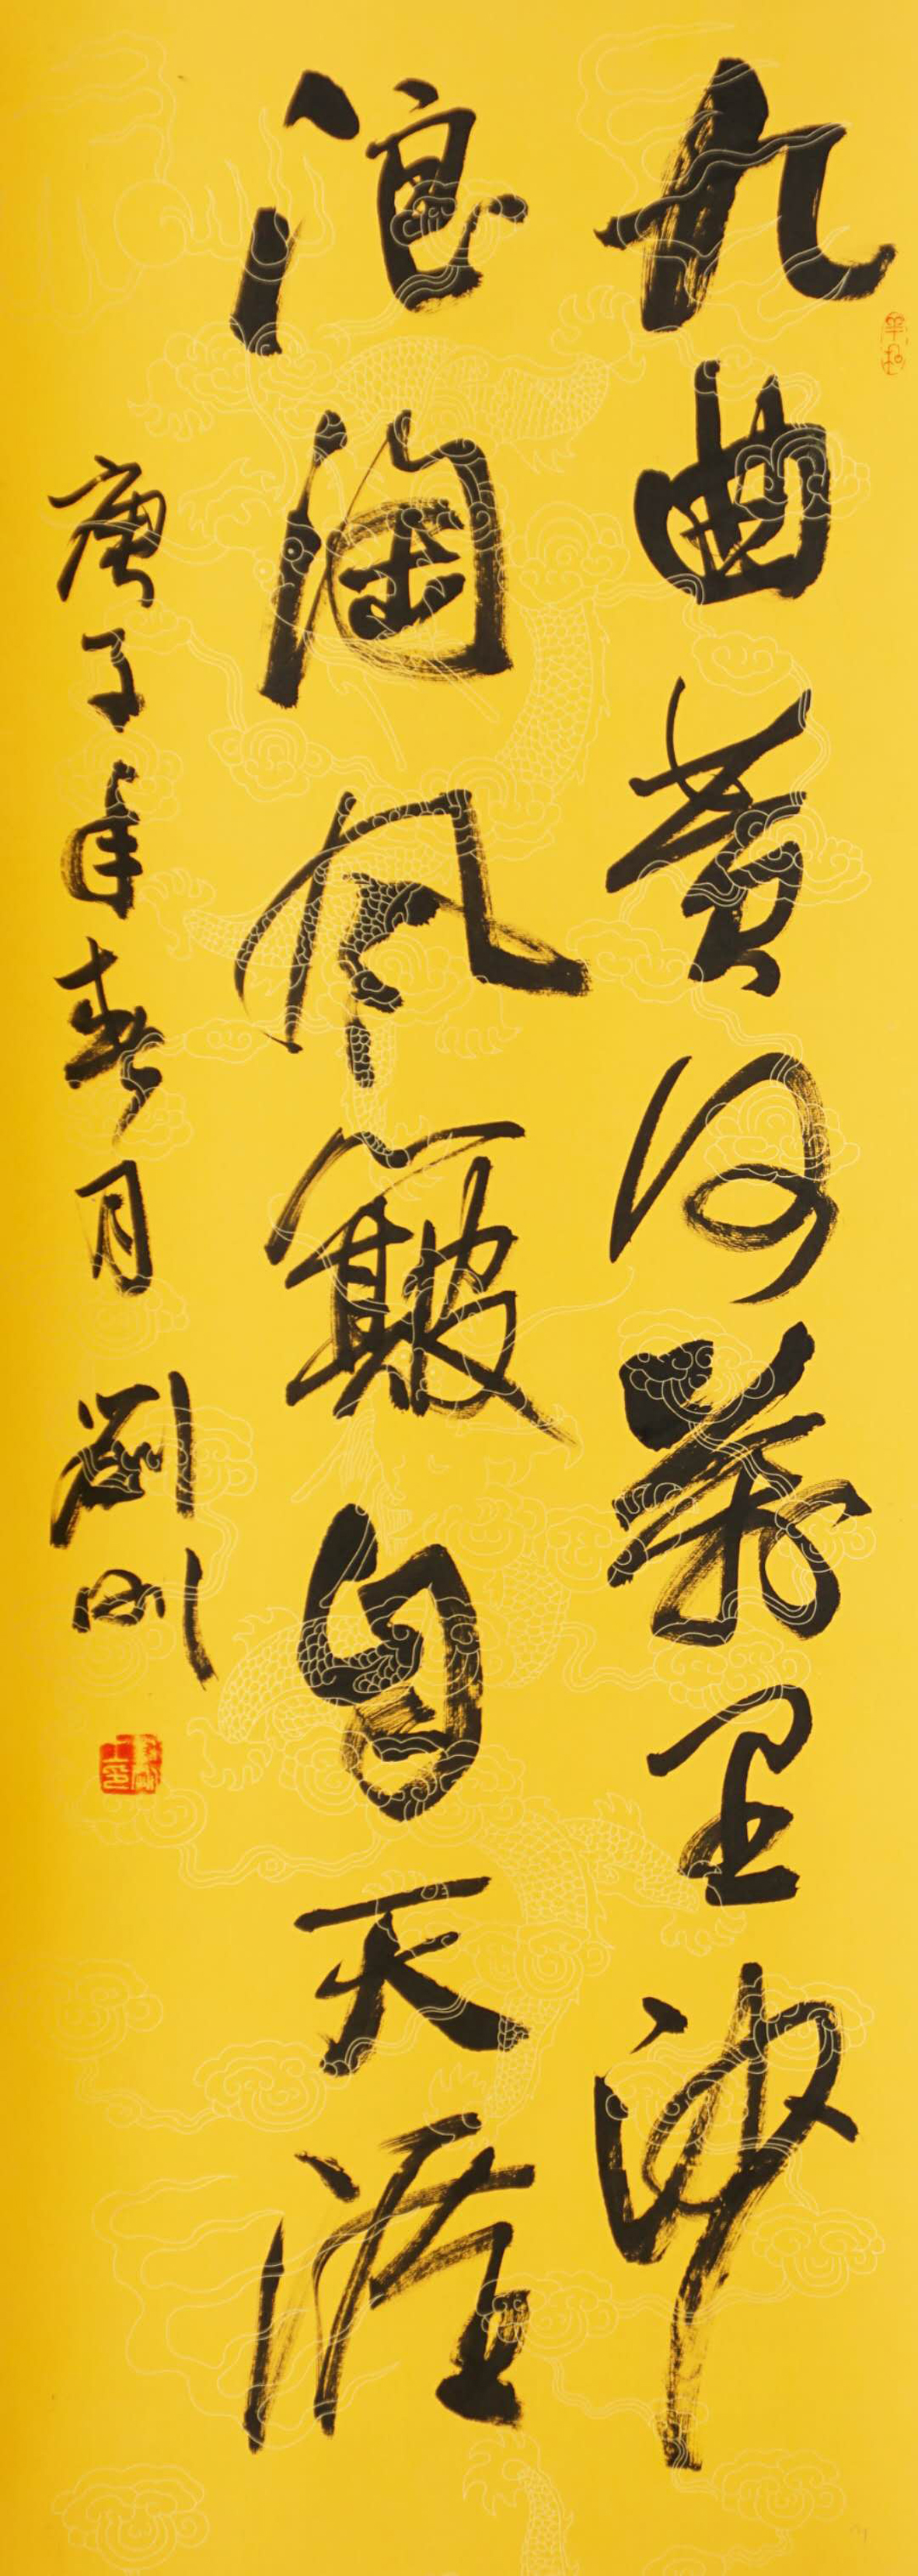 九曲黄河萬里沙
浪淘风簸自天涯
庚子年春月 劉刚